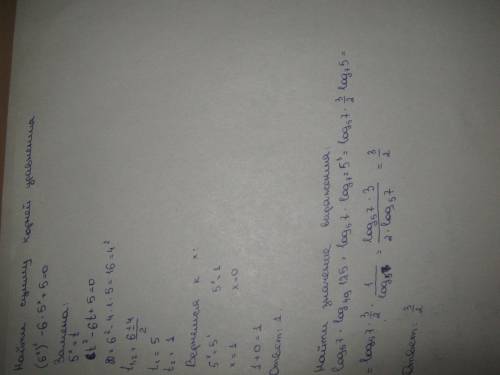 Найти сумму корней уравнения
(5ˣ)² - 6·5ˣ + 5 = 0
Замена:
5ˣ = t
t² - 6t + 5 = 0
D = 6² - 4·1·5 = 16 = 4²
t₁,₂ = (6±4)/2
t₁ = 5
t₂ = 1
Вернемся к x:
5ˣ = 5¹ 5ˣ = 1
x = 1 x = 0
1 + 0 = 1
Ответ: 1.
Найти значение выражения:
log₅7 · log₄₉125 = log₅7 · log₇²5³ = log₅7 · 3/2 log₇5 =
= log₅7 · 3/2 · 1/log₅7 = (log₅7 · 3)/(2 · log₅7) = 3/2
Ответ: 3/2